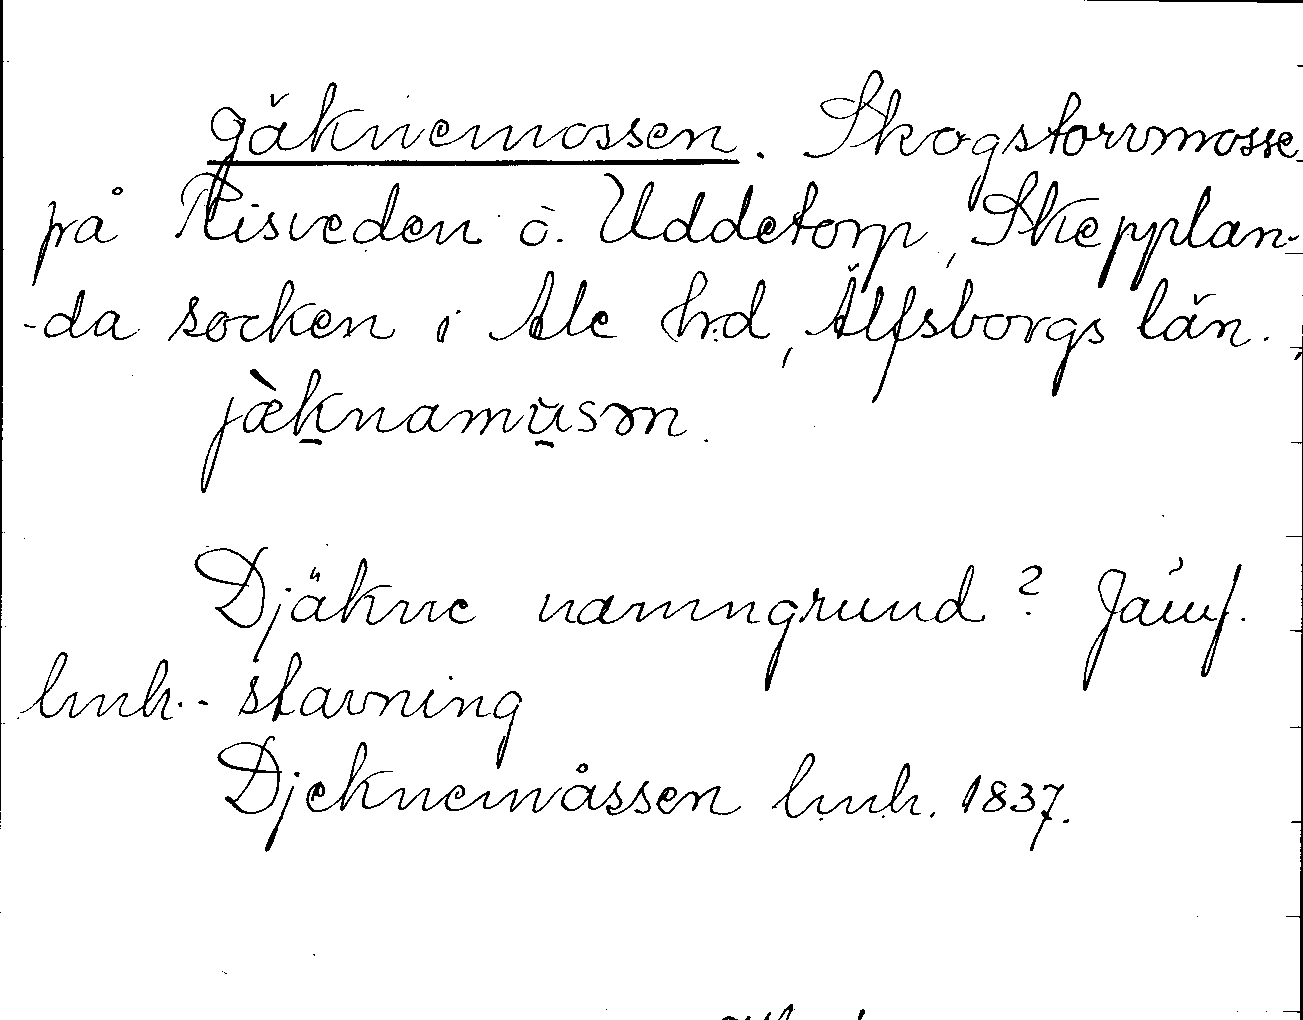 gäknemossen. Skogstorvmosse
på Risveden ö. Uddetorp, Skepplan-
-da socken i Ale hrd, Älfsborgs län.
jæ̀k̠namu̠sən.
Djäkne namngrund? Jämf.
lmh.- stavning
Djeknemåssen lmh. 1837.